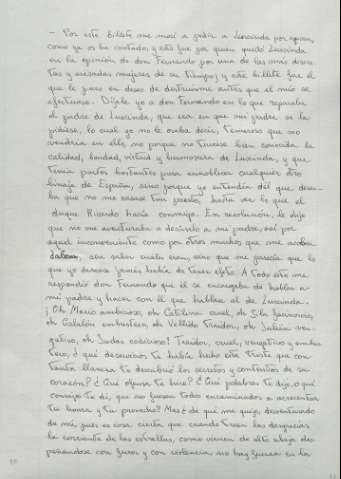 - Por este billete me moví a pedir a Luscinda por esposa,
como ya os he contado, y este fue por quien quedó Luscinda
en la opinión de don Fernando por una de las más discre-
tas y avisadas mujeres de su tiempo; y este billete fue el
que le puso en deseo de destruirme antes que el mío se
efectuase. Díjele yo a don Fernando en lo que reparaba
el padre de Luscinda, que era en que mi padre se la
pidiese, lo cual yo no le osaba decir, temeroso que no
vendría en ello, no porque no tuviese bien conocida la
calidad, bondad, virtud y hermosura de Luscinda, y que
tenía partes bastantes para ennoblecer cualquier otro
linaje de España, sino porque yo entendía dél que desea-
ba que no me casase tan presto, hasta ver lo que el
duque Ricardo hacía conmigo. En resolución, le dije
que no me aventuraba a decírselo a mi padre, así por
aquel inconveniente como por otros muchos que me acobar-
daban, sin saber cuáles eran, sino que me parecía que lo
que yo desease jamás había de tener efeto. A todo esto me
respondió don Fernando que él se encargaba de hablar a
mi padre y hacer con él que hablase al de Luscinda.
¡Oh Mario ambicioso, oh Catilina cruel, oh Sila facinoroso,
oh Galalón embustero, oh Vellido traidor, oh Julián ven-
gativo, oh Judas codicioso! Traidor, cruel, vengativo y embus-
tero, ¿qué deservicios te había hecho este triste que con
tanta llaneza te descubrió los secretos y contentos de su
corazón? ¿Qué ofensa te hice? ¿Qué palabras te dije, o qué
consejo te di, que no fuesen todos encaminados a acrecentar
tu honra y tu provecho? Mas ¿de qué me quejo, desventurado
de mí, pues es cosa cierta que cuando traen las desgracias
la corriente de las estrellas, como vienen de alto abajo des-
peñándose con furor y con violencia, no hay fuerza en la